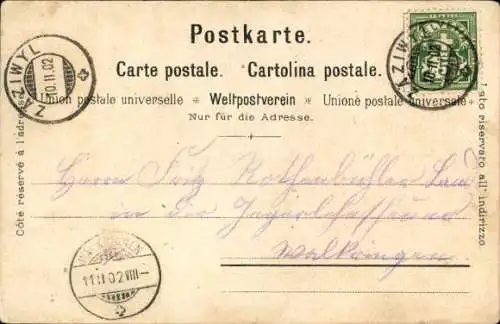 Postkarte.
Carte postale. Cartolina postale.
Union postale universelle * Weltpostverein * Unione postale universale
Nur für die Adresse.
Côté réservé à l'adresse
Lato riservato all' indirizzo.
ZÄZIWYL
10.II.02
ZÄZIWYL
10.II.02
Herrn Fritz Rothenbühler
in der
Walkringen
11.II.02.VIII-